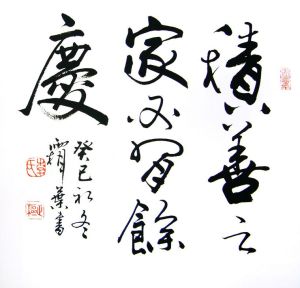 積善之
家必有餘
慶
癸巳初冬
霜葉書